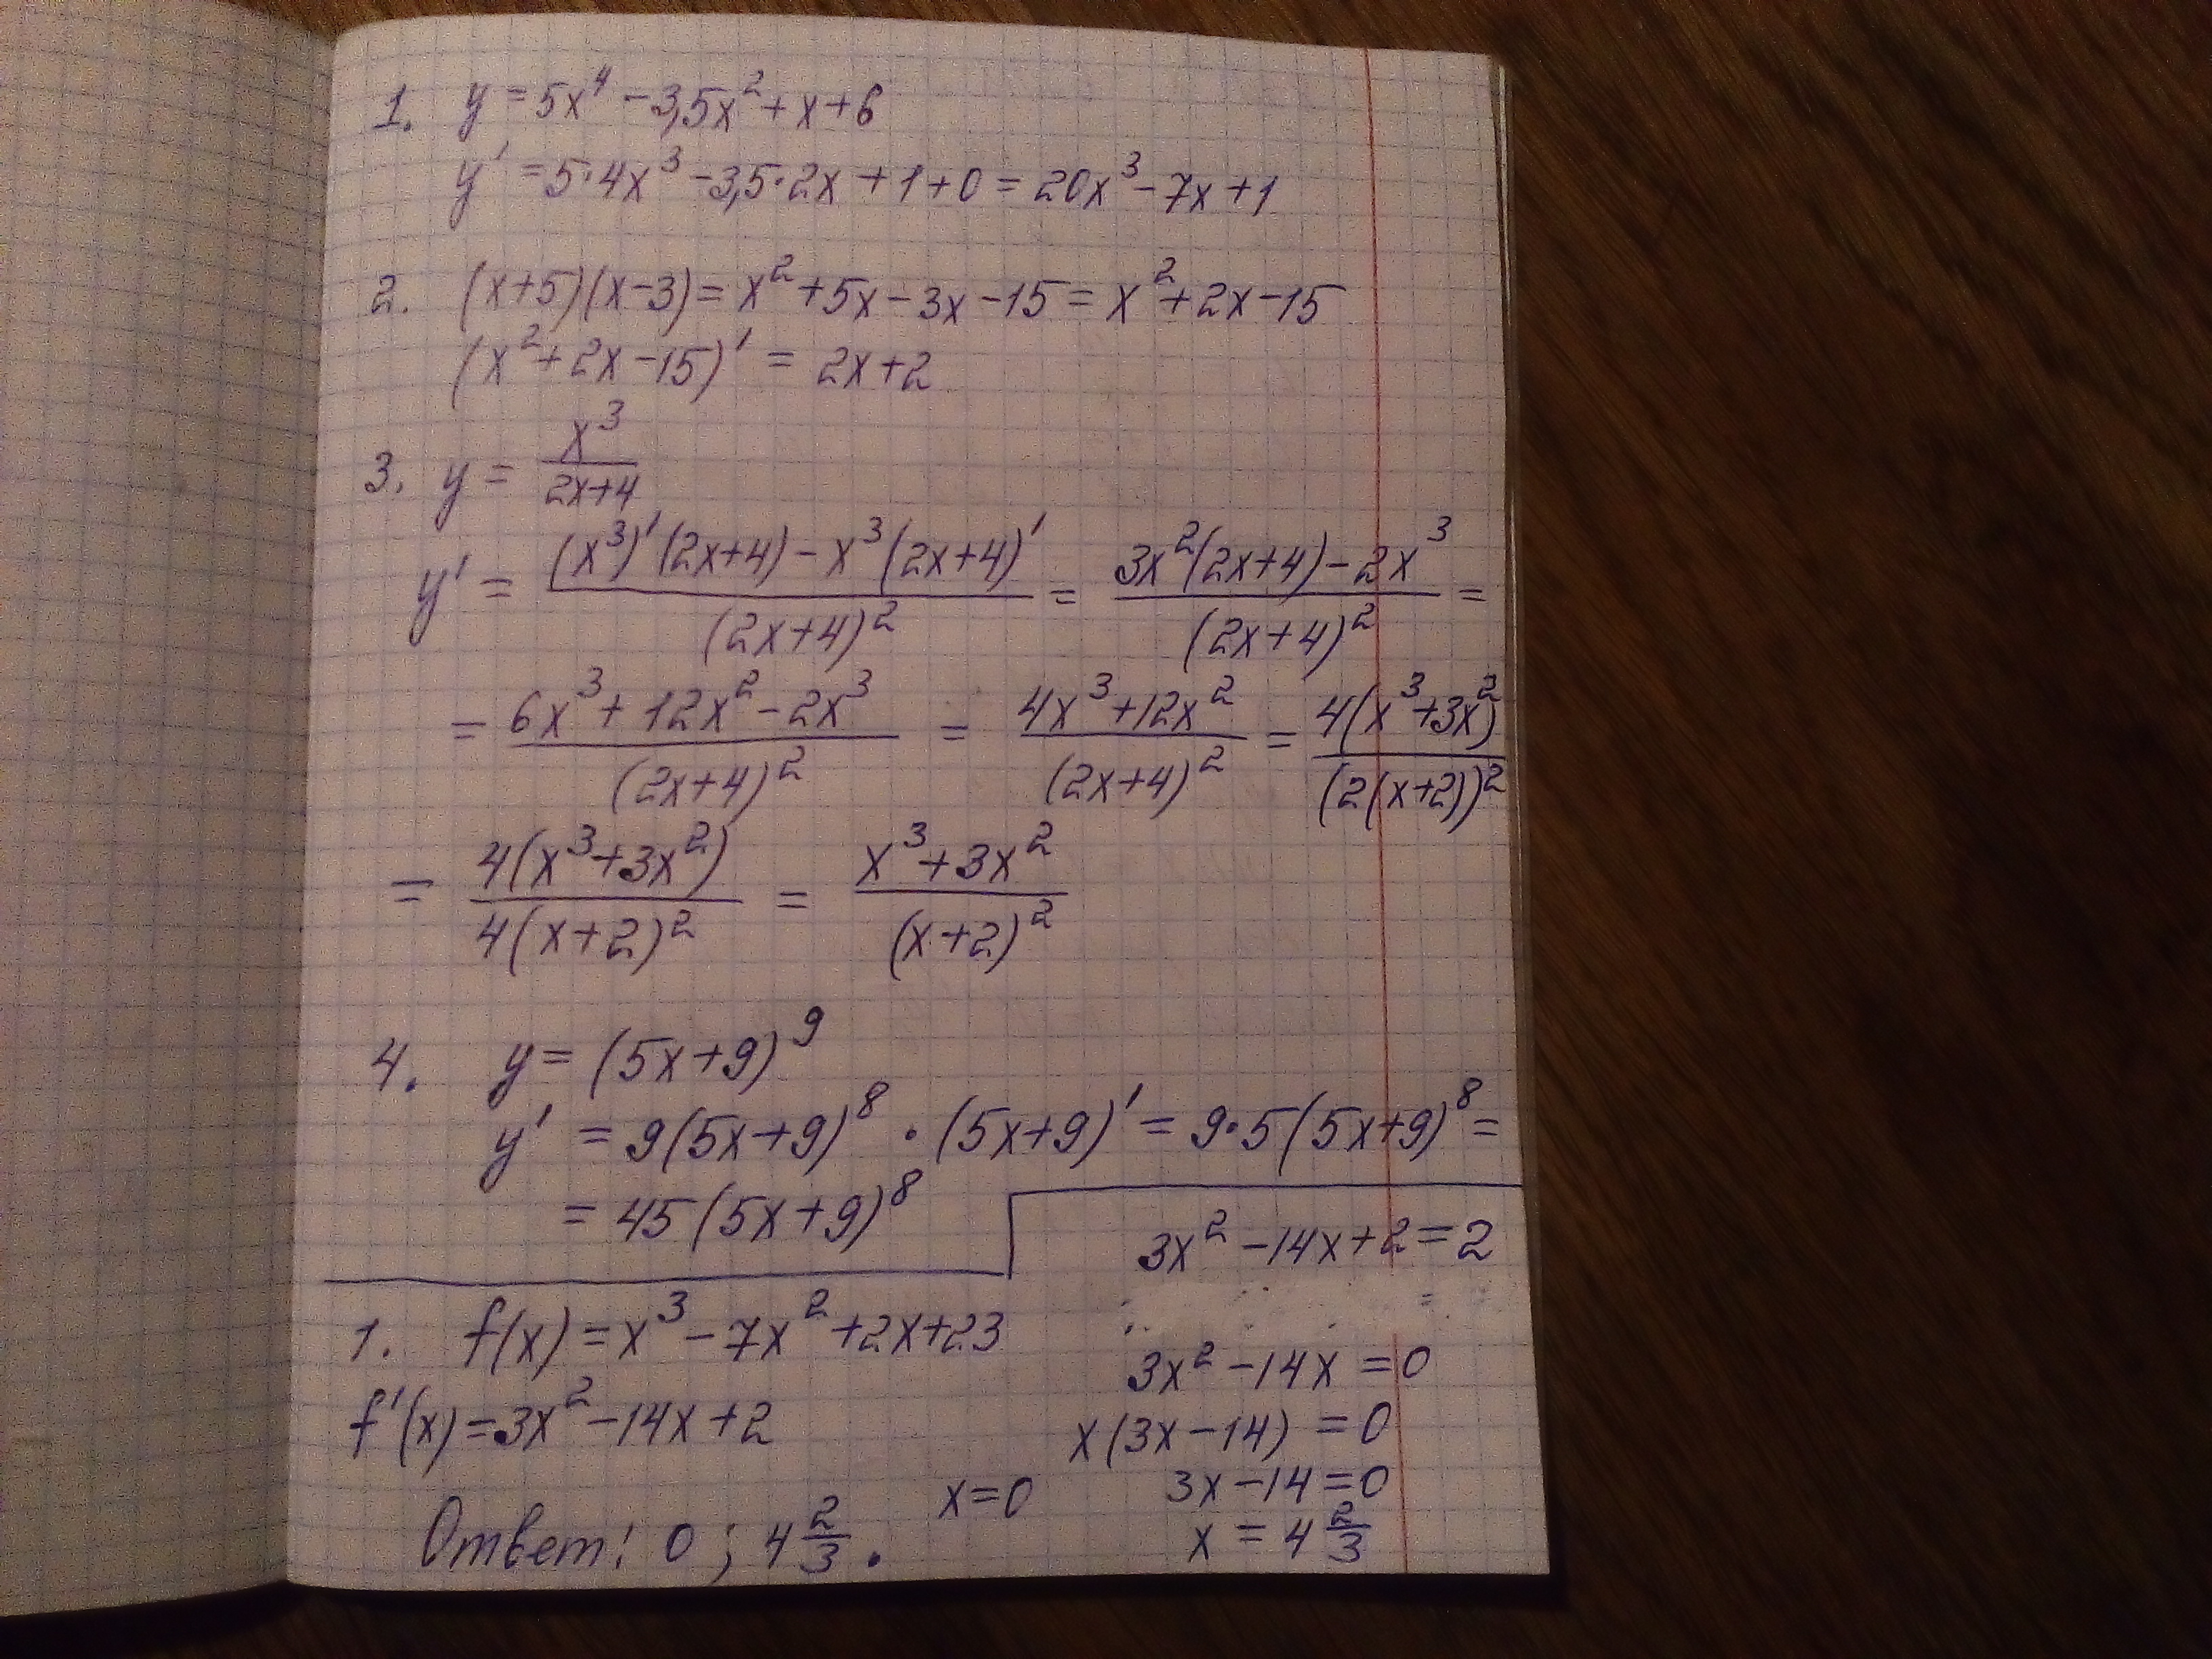 1. y = 5x⁴ - 3,5x² + x + 6
y' = 5·4x³ - 3,5·2x + 1 + 0 = 20x³ - 7x + 1
2. (x+5)(x-3) = x² + 5x - 3x - 15 = x² + 2x - 15
(x² + 2x - 15)' = 2x + 2
3. y = x³/(2x+4)
y' = ((x³)'(2x+4) - x³(2x+4)')/(2x+4)² = (3x²(2x+4) - 2x³)/(2x+4)² =
= (6x³ + 12x² - 2x³)/(2x+4)² = (4x³ + 12x²)/(2x+4)² = 4(x³+3x²)/(2(x+2))²
= 4(x³+3x²)/4(x+2)² = (x³+3x²)/(x+2)²
4. y = (5x+9)⁹
y' = 9(5x+9)⁸ · (5x+9)' = 9·5(5x+9)⁸ =
= 45(5x+9)⁸
1. f(x) = x³ - 7x² + 2x + 23
f'(x) = 3x² - 14x + 2
3x² - 14x + 2 = 2
3x² - 14x = 0
x(3x - 14) = 0
x = 0
3x - 14 = 0
x = 4 2/3
Ответ: 0 ; 4 2/3.